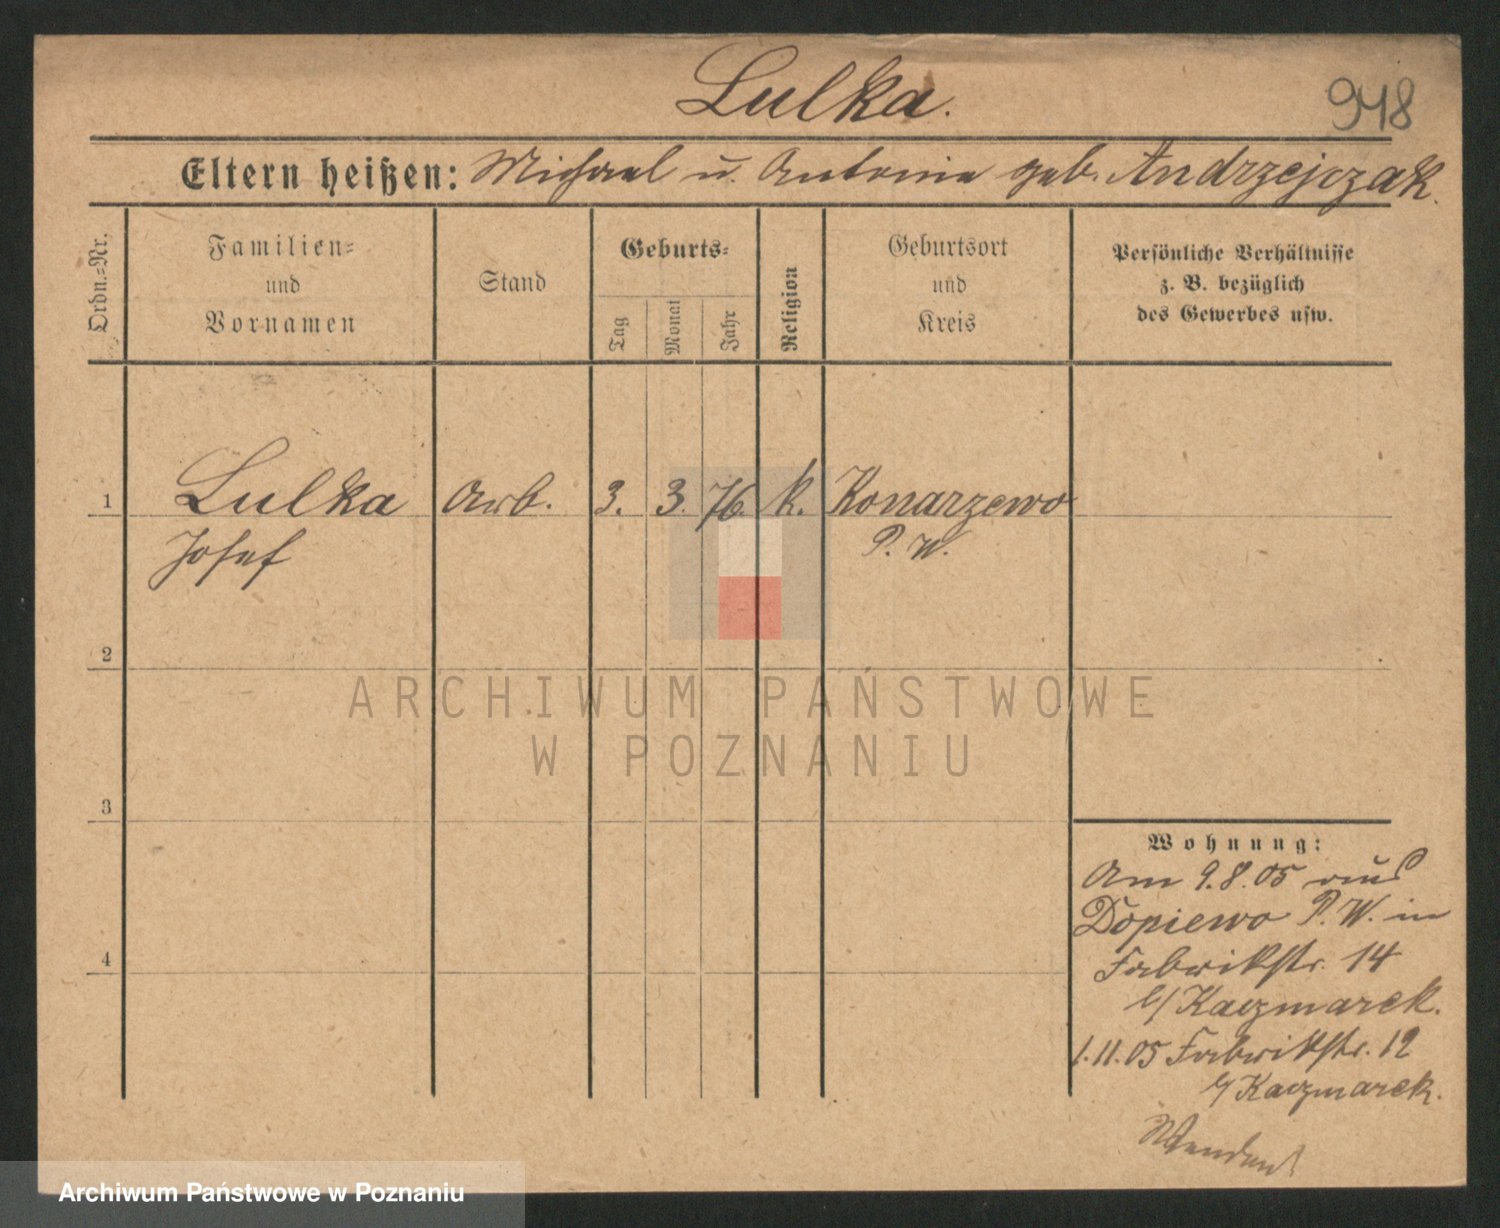 Lulka.
948
Eltern heißen: Michael u. Antonie geb. Andrzejczak.
Ordn.=Nr.
Familien=
und
Vornamen
Stand
Geburts=
Tag
Monat
Jahr
Religion
Geburtsort
und
Kreis
Persönliche Verhältnisse
z. B. bezüglich
des Gewerbes usw.
1 Lulka Arb. 3. 3. 76. k. Konarzewo
Josef P. W.
2
ARCHIWUM PAŃSTWOWE
W POZNANIU
3
Wohnung:
Am 9.8.05 aus
Dopiewo P. W. in
4
Fabrikstr. 14
b/ Kaczmarek.
1.11.05 Fabrikstr. 12
b/ Kaczmarek.
Wenden!
Archiwum Państwowe w Poznaniu